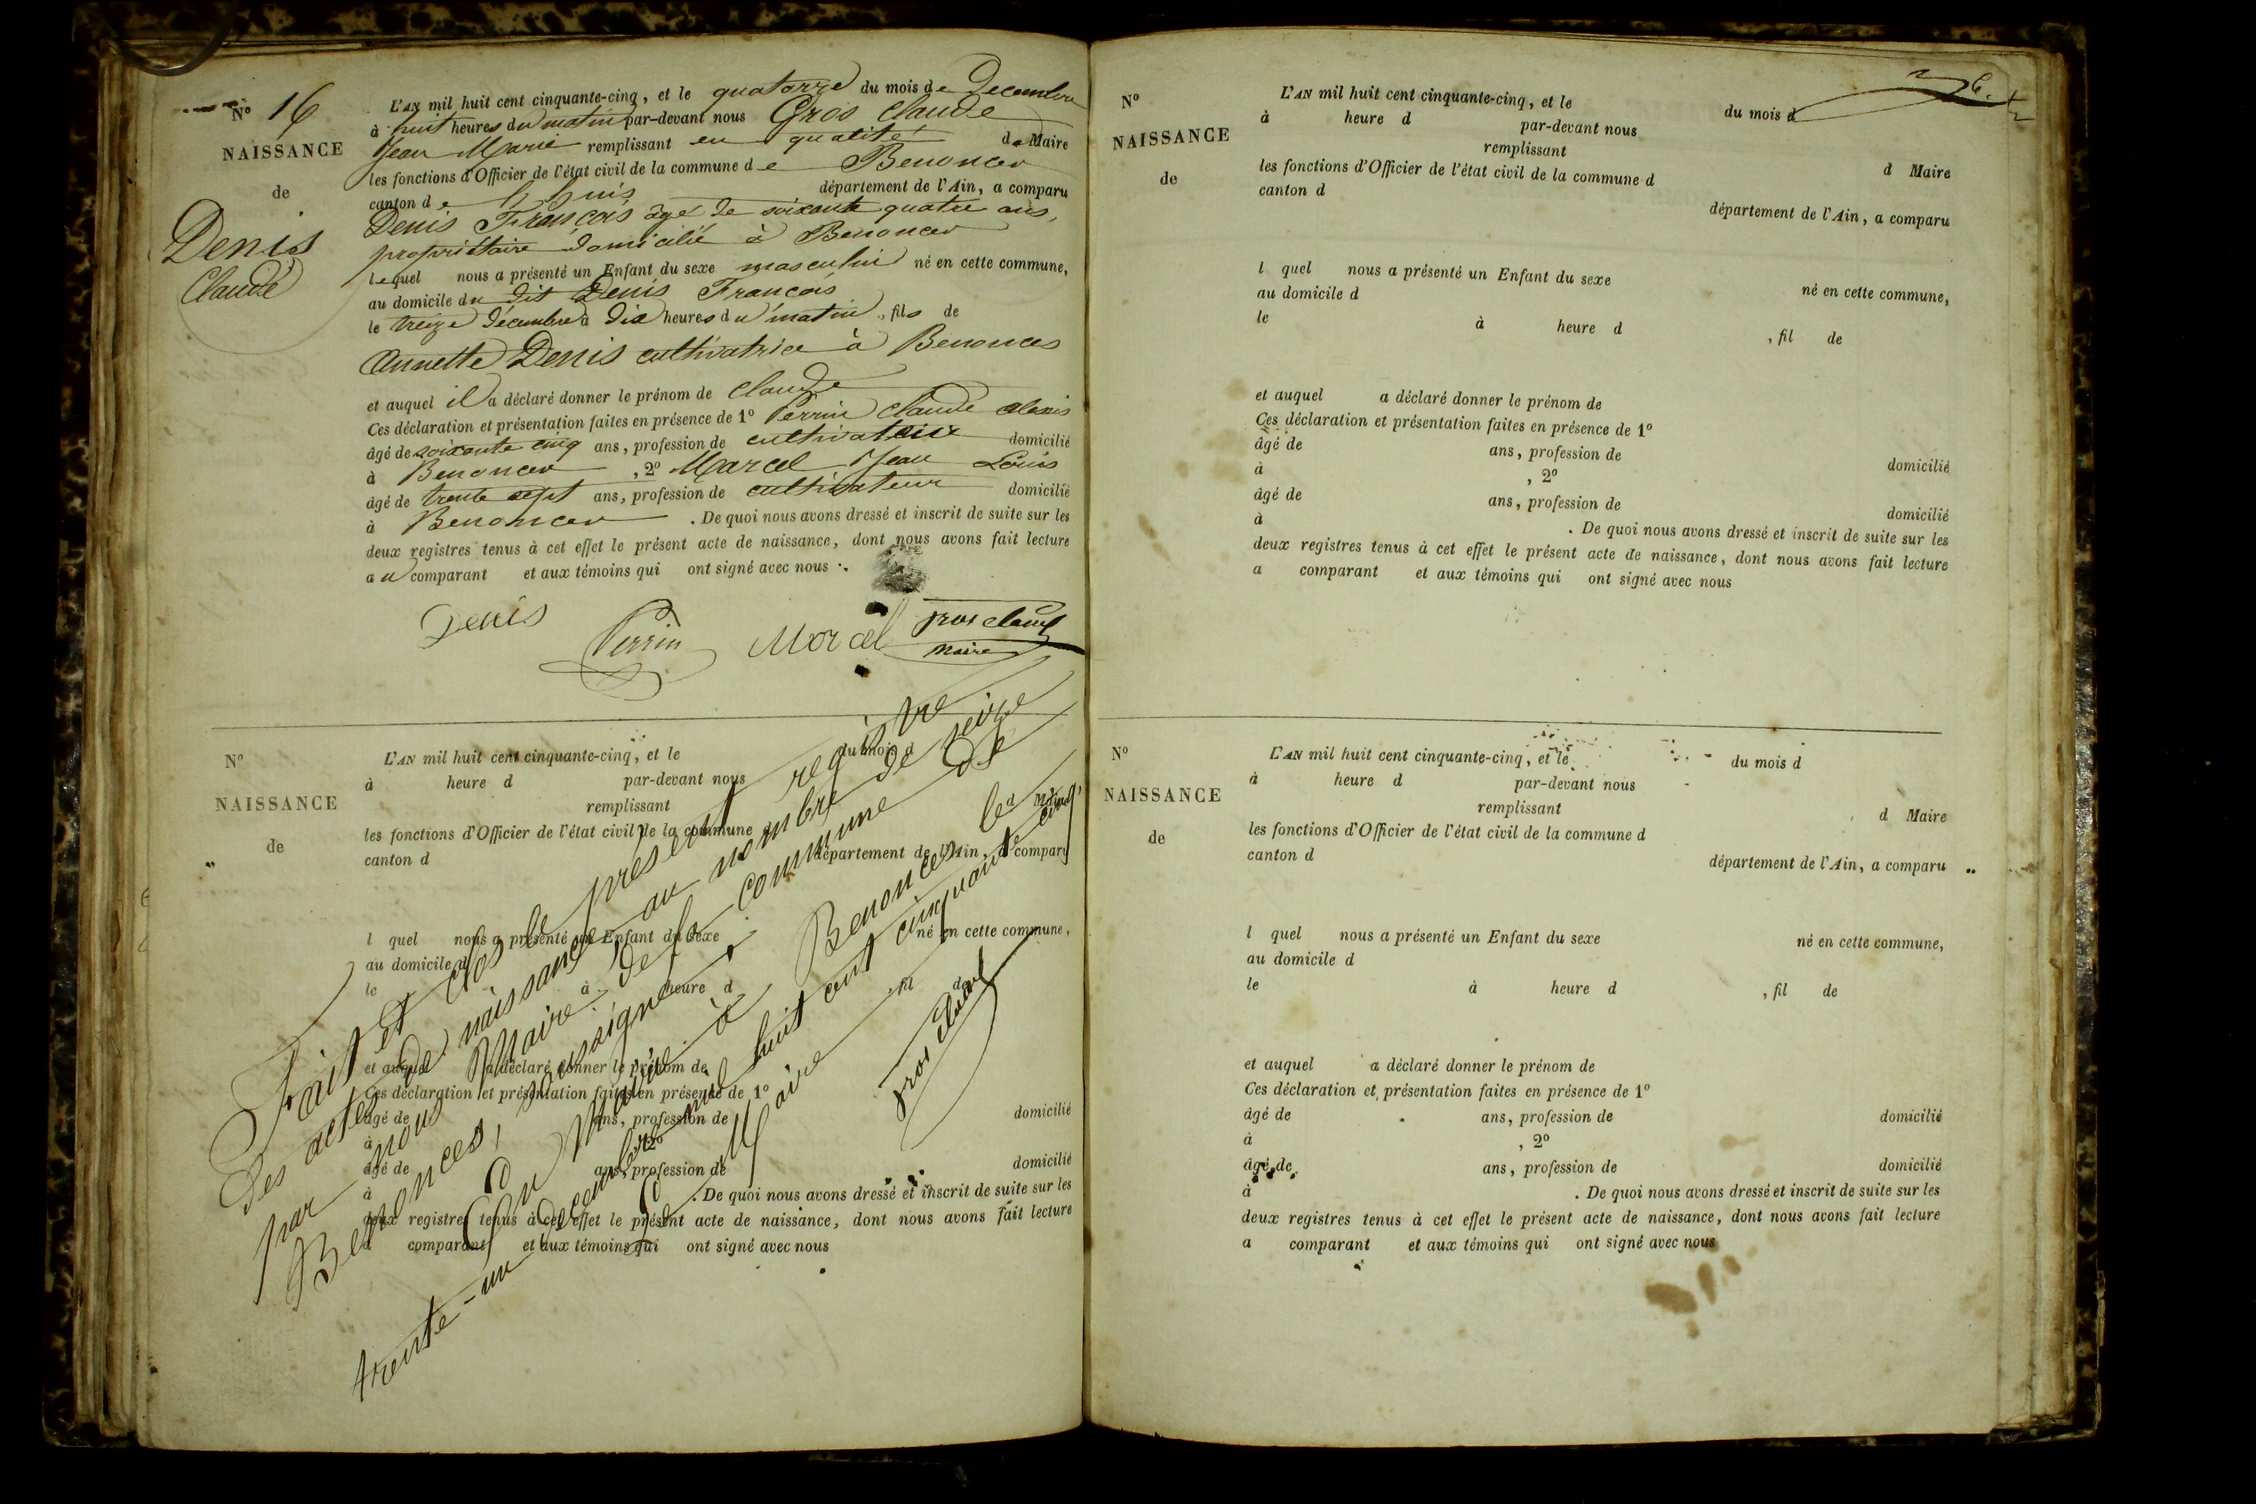 No 16
NAISSANCE
de
Denis
Claude
L'AN mil huit cent cinquante-cinq, et le quatorze du mois de Decembre
à huit heures du matin par-devant nous Gros Claude
Jean Marie remplissant en qualité de Maire
les fonctions d'Officier de l'état civil de la commune de Benonces
canton de Lhuis département de l'Ain, a comparu
Denis François âgé de soixante quatre ans,
propriétaire domicilié à Benonces
lequel nous a présenté un Enfant du sexe masculin né en cette commune,
au domicile du dit Denis François
le treize décembre à dix heures du matin, fils de
Annette Denis cultivatrice à Benonces
et auquel il a déclaré donner le prénom de Claude
Ces déclaration et présentation faites en présence de 1º Perrin Claude alexis
âgé de soixante cinq ans, profession de cultivateur domicilié
à Benonces, 2º Marcel Jean Louis
âgé de trente sept ans, profession de cultivateur domicilié
à Benonces. De quoi nous avons dressé et inscrit de suite sur les
deux registres tenus à cet effet le présent acte de naissance, dont nous avons fait lecture
au comparant et aux témoins qui ont signé avec nous.
Denis
Perrin
Marcel
gros claude
maire
No
NAISSANCE
de
L'AN mil huit cent cinquante-cinq, et le du mois d
à heure d par-devant nous
remplissant
les fonctions d'Officier de l'état civil de la commune
canton d département de l'Ain, a comparu
l quel nous a présenté un Enfant du sexe né en cette commune,
au domicile d
le à heure d , fil de
et auquel a déclaré donner le prénom de
Ces déclaration et présentation faites en présence de 1º
âgé de ans, profession de domicilié
à , 2º
âgé de ans, profession de domicilié
à . De quoi nous avons dressé et inscrit de suite sur les
deux registres tenus à cet effet le présent acte de naissance, dont nous avons fait lecture
a comparant et aux témoins qui ont signé avec nous
Fait et clos le présent registre
des actes de naissance au nombre de seize
par nous Maire de la commune de
Benonces, soussigné,
En Mairie à Benonces le
trente-un Décembre mil huit cent cinquante cinq
Le Maire
gros claude
6
No
NAISSANCE
de
L'AN mil huit cent cinquante-cinq, et le du mois d
à heure d par-devant nous
remplissant d Maire
les fonctions d'Officier de l'état civil de la commune d
canton d département de l'Ain, a comparu
l quel nous a présenté un Enfant du sexe né en cette commune,
au domicile d
le à heure d , fil de
et auquel a déclaré donner le prénom de
Ces déclaration et présentation faites en présence de 1º
âgé de ans, profession de domicilié
à , 2º
âgé de ans, profession de domicilié
à . De quoi nous avons dressé et inscrit de suite sur les
deux registres tenus à cet effet le présent acte de naissance, dont nous avons fait lecture
a comparant et aux témoins qui ont signé avec nous
No
NAISSANCE
de
L'AN mil huit cent cinquante-cinq, et le du mois d
à heure d par-devant nous
remplissant d Maire
les fonctions d'Officier de l'état civil de la commune d
canton d département de l'Ain, a comparu
l quel nous a présenté un Enfant du sexe né en cette commune,
au domicile d
le à heure d , fil de
et auquel a déclaré donner le prénom de
Ces déclaration et présentation faites en présence de 1º
âgé de ans, profession de domicilié
à , 2º
âgé de ans, profession de domicilié
à . De quoi nous avons dressé et inscrit de suite sur les
deux registres tenus à cet effet le présent acte de naissance, dont nous avons fait lecture
a comparant et aux témoins qui ont signé avec nous